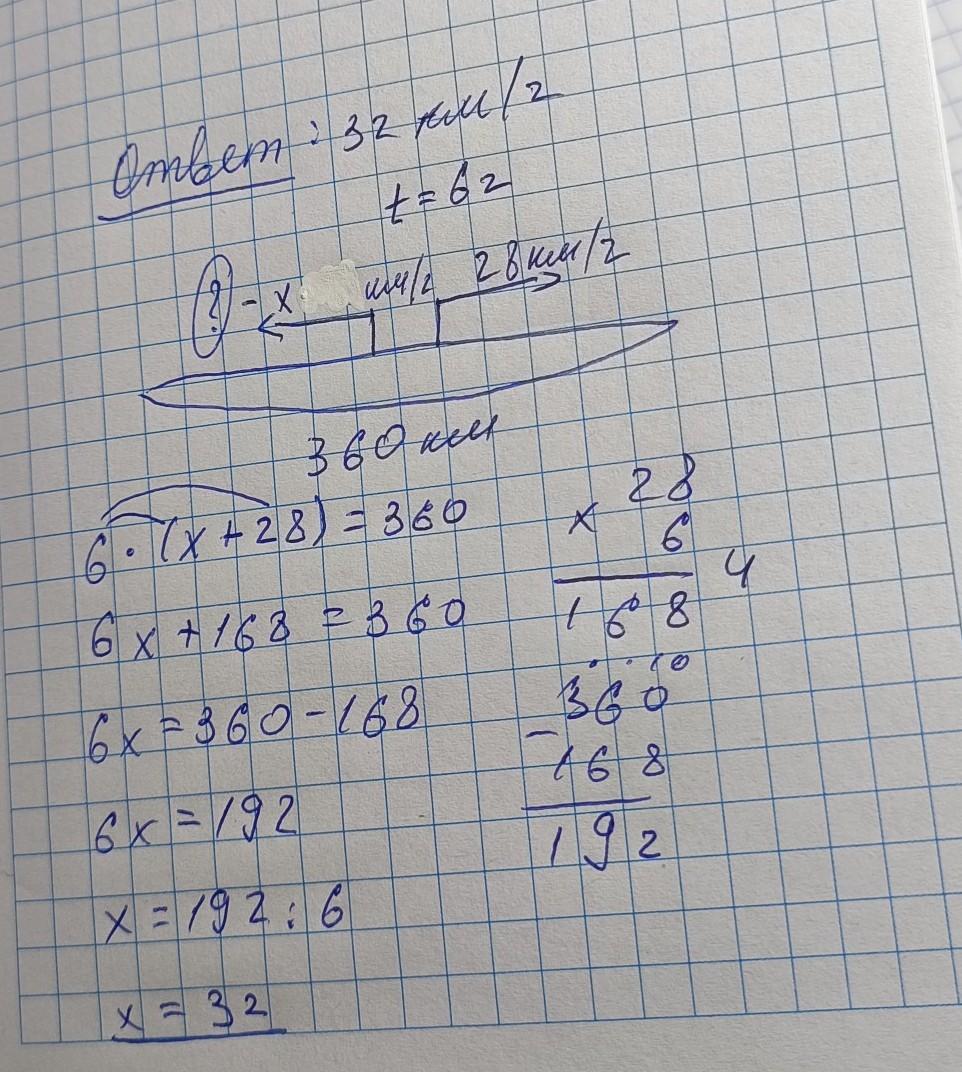 Ответ: 32 км/г
t = 6г
? - x км/г 28 км/г
360 км
6 · (x + 28) = 360
6x + 168 = 360
6x = 360 - 168
6x = 192
x = 192 : 6
x = 32
x 28
6
4
168
10
360
-
168
192